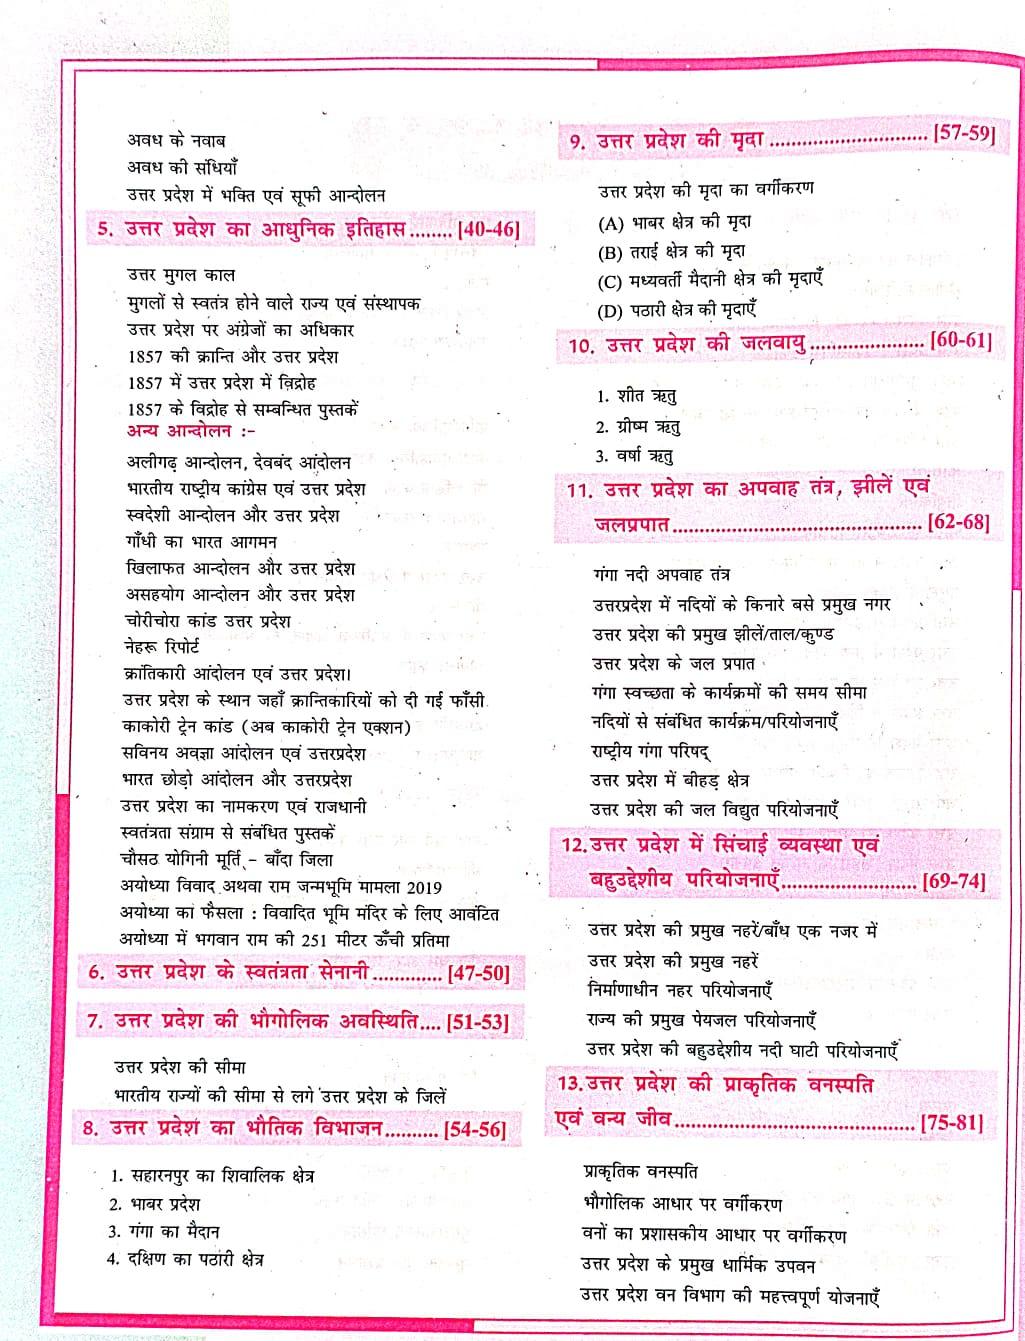 अवध के नवाब
अवध की संधियाँ
उत्तर प्रदेश में भक्ति एवं सूफी आन्दोलन
5. उत्तर प्रदेश का आधुनिक इतिहास ........ [40-46]
उत्तर मुगल काल
मुगलों से स्वतंत्र होने वाले राज्य एवं संस्थापक
उत्तर प्रदेश पर अंग्रेजों का अधिकार
1857 की क्रान्ति और उत्तर प्रदेश
1857 में उत्तर प्रदेश में विद्रोह
1857 के विद्रोह से सम्बन्धित पुस्तकें
अन्य आन्दोलन :-
अलीगढ़ आन्दोलन, देवबंद आंदोलन
भारतीय राष्ट्रीय कांग्रेस एवं उत्तर प्रदेश
स्वदेशी आन्दोलन और उत्तर प्रदेश
गाँधी का भारत आगमन
खिलाफत आन्दोलन और उत्तर प्रदेश
असहयोग आन्दोलन और उत्तर प्रदेश
चोरीचोरा कांड उत्तर प्रदेश
नेहरू रिपोर्ट
क्रांतिकारी आंदोलन एवं उत्तर प्रदेश।
उत्तर प्रदेश के स्थान जहाँ क्रान्तिकारियों को दी गई फाँसी
काकोरी ट्रेन कांड (अब काकोरी ट्रेन एक्शन)
सविनय अवज्ञा आंदोलन एवं उत्तरप्रदेश
भारत छोड़ो आंदोलन और उत्तरप्रदेश
उत्तर प्रदेश का नामकरण एवं राजधानी
स्वतंत्रता संग्राम से संबंधित पुस्तकें
चौसठ योगिनी मूर्ति - बाँदा जिला
अयोध्या विवाद अथवा राम जन्मभूमि मामला 2019
अयोध्या का फैसला : विवादित भूमि मंदिर के लिए आवंटित
अयोध्या में भगवान राम की 251 मीटर ऊँची प्रतिमा
6. उत्तर प्रदेश के स्वतंत्रता सेनानी ............. [47-50]
7. उत्तर प्रदेश की भौगोलिक अवस्थिति.... [51-53]
उत्तर प्रदेश की सीमा
भारतीय राज्यों की सीमा से लगे उत्तर प्रदेश के जिलें
8. उत्तर प्रदेश का भौतिक विभाजन.......... [54-56]
1. सहारनपुर का शिवालिक क्षेत्र
2. भाबर प्रदेश
3. गंगा का मैदान
4. दक्षिण का पठारी क्षेत्र
9. उत्तर प्रदेश की मृदा ............................. [57-59]
उत्तर प्रदेश की मृदा का वर्गीकरण
(A) भाबर क्षेत्र की मृदा
(B) तराई क्षेत्र की मृदा
(C) मध्यवर्ती मैदानी क्षेत्र की मृदाएँ
(D) पठारी क्षेत्र की मृदाएँ
10. उत्तर प्रदेश की जलवायु ..................... [60-61]
1. शीत ऋतु
2. ग्रीष्म ऋतु
3. वर्षा ऋतु
11. उत्तर प्रदेश का अपवाह तंत्र, झीलें एवं
जलप्रपात ............................................. [62-68]
गंगा नदी अपवाह तंत्र
उत्तरप्रदेश में नदियों के किनारे बसे प्रमुख नगर
उत्तर प्रदेश की प्रमुख झीलें/ताल/कुण्ड
उत्तर प्रदेश के जल प्रपात
गंगा स्वच्छता के कार्यक्रमों की समय सीमा
नदियों से संबंधित कार्यक्रम/परियोजनाएँ
राष्ट्रीय गंगा परिषद्
उत्तर प्रदेश में बीहड़ क्षेत्र
उत्तर प्रदेश की जल विद्युत परियोजनाएँ
12. उत्तर प्रदेश में सिंचाई व्यवस्था एवं
बहुउद्देशीय परियोजनाएँ......................... [69-74]
उत्तर प्रदेश की प्रमुख नहरें/बाँध एक नजर में
उत्तर प्रदेश की प्रमुख नहरें
निर्माणाधीन नहर परियोजनाएँ
राज्य की प्रमुख पेयजल परियोजनाएँ
उत्तर प्रदेश की बहुउद्देशीय नदी घाटी परियोजनाएँ
13. उत्तर प्रदेश की प्राकृतिक वनस्पति
एवं वन्य जीव ............................................ [75-81]
प्राकृतिक वनस्पति
भौगोलिक आधार पर वर्गीकरण
वनों का प्रशासकीय आधार पर वर्गीकरण
उत्तर प्रदेश के प्रमुख धार्मिक उपवन
उत्तर प्रदेश वन विभाग की महत्त्वपूर्ण योजनाएँ